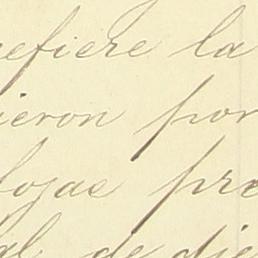 efiere la
ieron por
lojas pre
al de die